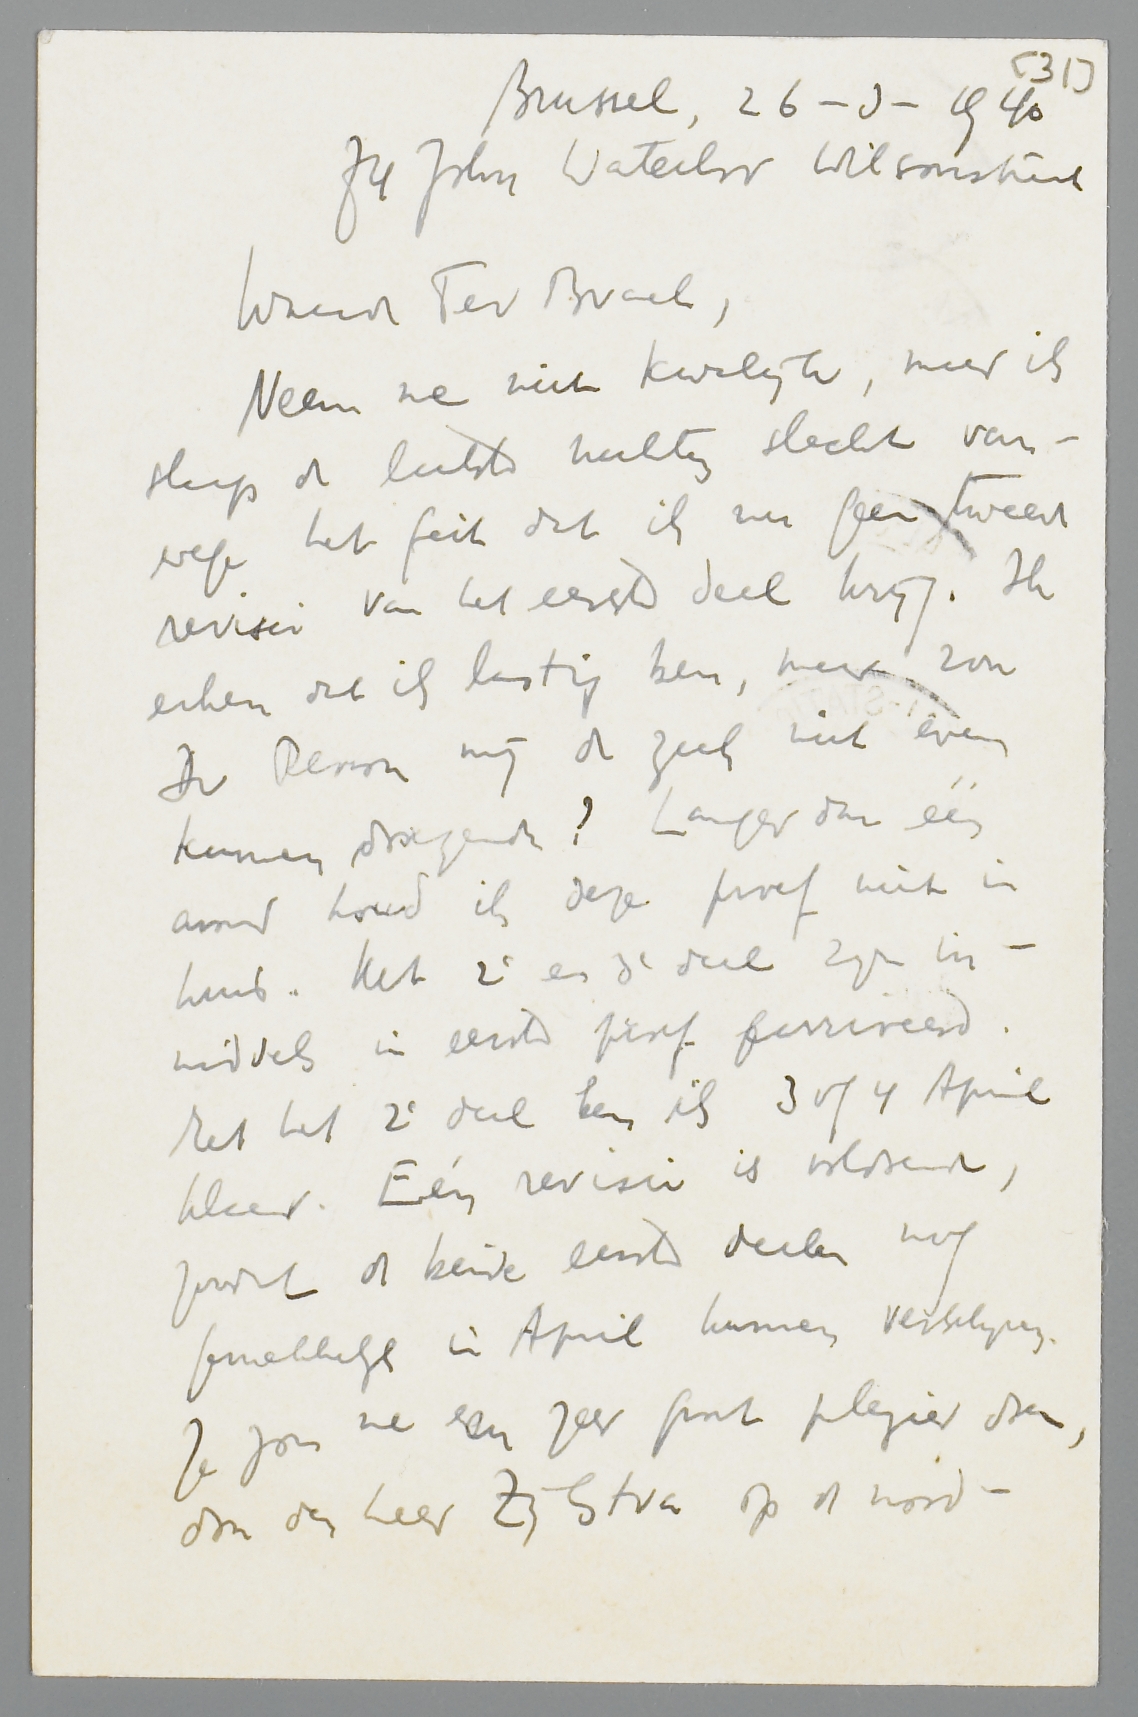 [31]
Brussel, 26-3-1940
74 John Waterloo Wilsonstraat
Waarde Ter Braak,
Neem me niet kwalijk, maar ik
slaap de laatste nachten slecht van-
wege het feit dat ik nu geen tweede
revisie van het eerste deel krijg. Ik
erken dat ik lastig ben, maar zou
Dr mij de zaak niet even
kunnen ? Langer dan één
avond houd ik deze proef niet in
huis. Het 2e en 3e deel zijn in-
middels in eerste proef gearriveerd.
Met het 2e deel ben ik 3 of 4 April
klaar. Eén revisie is voldoende,
zoodat de beide eerste deelen nog
gemakkelijk in April kunnen verschijnen.
Je zou me een zeer groot plezier doen,
door den heer Zijlstra op de nood-